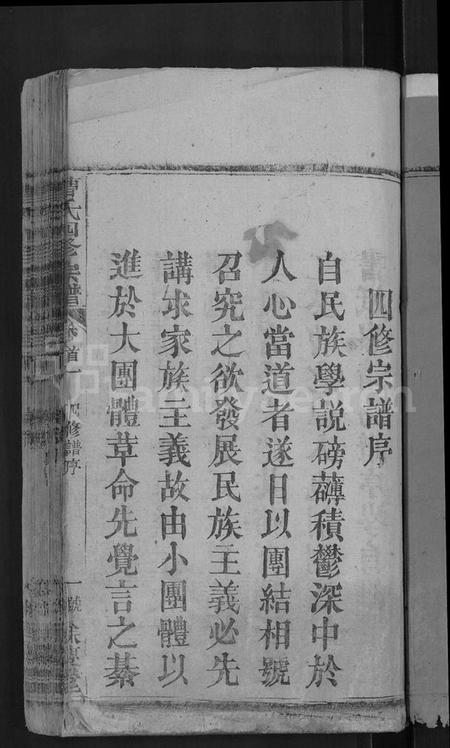 四修宗譜序
自民族學說磅礡積鬱深中於
人心當道者遂日以團結相號
召究之欲發展民族主義必先
講求家族主義故由小團體以
進於大團體革命先覺言之綦
曹氏四修宗譜
首一 四修譜序
一號